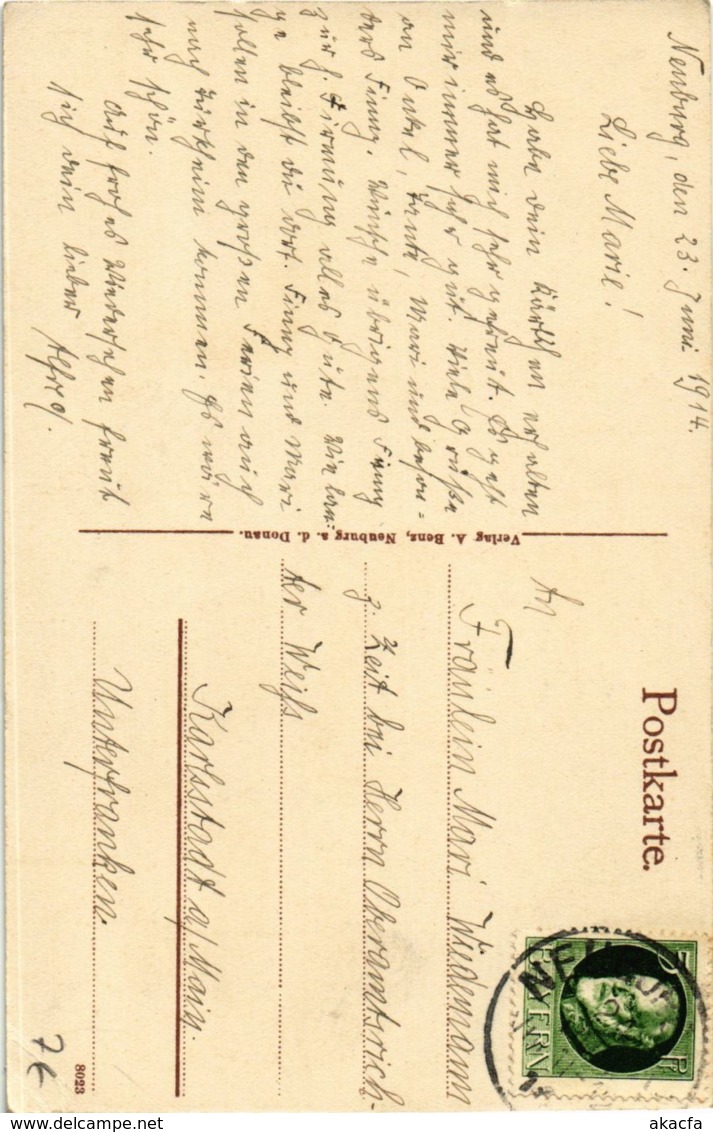 Neuburg, den 23. Juni 1914.
Liebe Marie!
Habe dein Kärtchen erhalten
und es hat mich sehr gefreut. Es geht
mir immer sehr gut. Viele Grüße
an Onkel, Tante, Mari und beson=
ders Finny. Wünsche übrigens Finny
zur h. Firmung alles Gute. Wie lan=
ge bleibst du dort. Finny und Mari
sollen in den großen Ferien auch
nach Türkheim kommen. Es wäre
sehr schön.
Auf frohes Wiedersehen freut
sich dein lieber Alfred.
Verlag A. Benz, Neuburg a. d. Donau.
Postkarte.
An
Fräulein Mari Wiedemann
z. Zeit bei Herrn Oberamtsrich-
ter Weiß
Karlstadt a/Main.
Unterfranken.
5 Pf
BAYERN
NEUBURG
8023
7€
akacfa